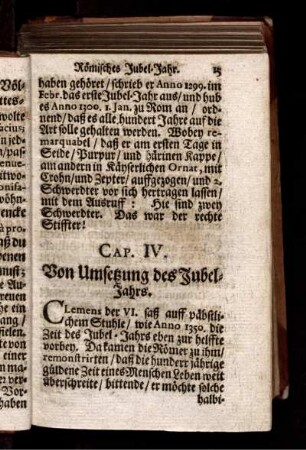 Römisches Jubel-Jahr. 15
haben gehöret/ schrieb er Anno 1299. im
Febr. das erste Jubel-Jahr aus/ und hub
es Anno 1300. 1. Jan. zu Rom an/ ord-
nend/ daß es alle hundert Jahre auf die
Art solle gehalten werden. Wobey re-
marquabel/ daß er am ersten Tage in
Seide/ Purpur/ und härinen Kappe/
am andern in Käyserlichen Ornat, mit
Crohn/ und Zepter/ auffgezogen/ und 2.
Schwerdter vor sich hertragen lassen/
mit dem Ausruff: Hie sind zwey
Schwerdter. Das war der rechte
Stiffter!
CAP. IV.
Von Umsetzung des Jubel-
Jahrs.
CLemens der VI. saß auff päbstli-
chem Stuhle/ wie Anno 1350. die
Zeit des Jubel-Jahrs eben zur helffte
vorbey. Da kamen die Römer zu ihm/
remonstrirten/ daß die hundert jährige
güldene Zeit eines Menschen Leben weit
überschreite/ bittende/ er möchte solche
halbi-